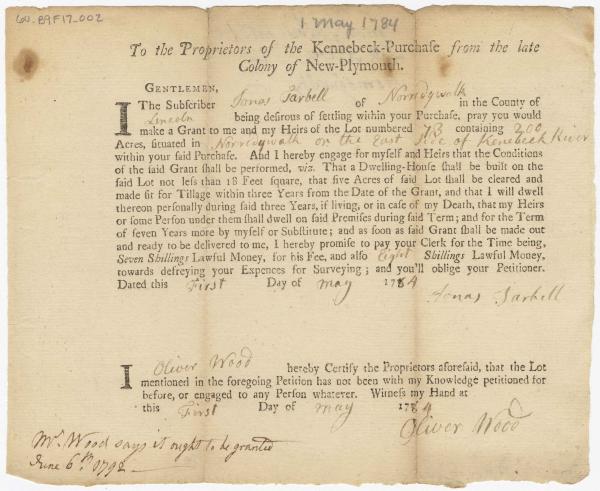 Coll. B9F17_002
1 May 1784
To the Proprietors of the Kennebeck-Purchaſe from the late
Colony of New-Plymouth.
GENTLEMEN,
I The Subſcriber Jonas Parbell of Norredgwalk in the County of
Lincoln being deſirous of ſettling within your Purchaſe, pray you would
make a Grant to me and my Heirs of the Lot numbered 73 containing 200
Acres, ſituated in Norredgwalk on the East Side of Kenebeck River
within your ſaid Purchaſe. And I hereby engage for myſelf and Heirs that the Conditions
of the ſaid Grant ſhall be performed, viz. That a Dwelling-Houſe ſhall be built on the
ſaid Lot not leſs than 18 Feet ſquare, that five Acres of ſaid Lot ſhall be cleared and
made fit for Tillage within three Years from the Date of the Grant, and that I will dwell
thereon perſonally during ſaid three Years, if living, or in caſe of my Death, that my Heirs
or ſome Perſon under them ſhall dwell on ſaid Premiſes during ſaid Term; and for the Term
of ſeven Years more by myſelf or Subſtitute; and as ſoon as ſaid Grant ſhall be made out
and ready to be delivered to me, I hereby promiſe to pay your Clerk for the Time being,
Seven Shillings Lawful Money, for his Fee, and alſo Eight Shillings Lawful Money,
towards defreying your Expences for Surveying; and you'll oblige your Petitioner.
Dated this First Day of May 1784
Jonas Parbell
I Oliver Wood hereby Certify the Proprietors aforeſaid, that the Lot
mentioned in the foregoing Petition has not been with my Knowledge petitioned for
before, or engaged to any Perſon whatever. Witneſs my Hand at
this First Day of May 1784
Oliver Wood
Mr. Wood says it ought to be granted
June 6th. 1792